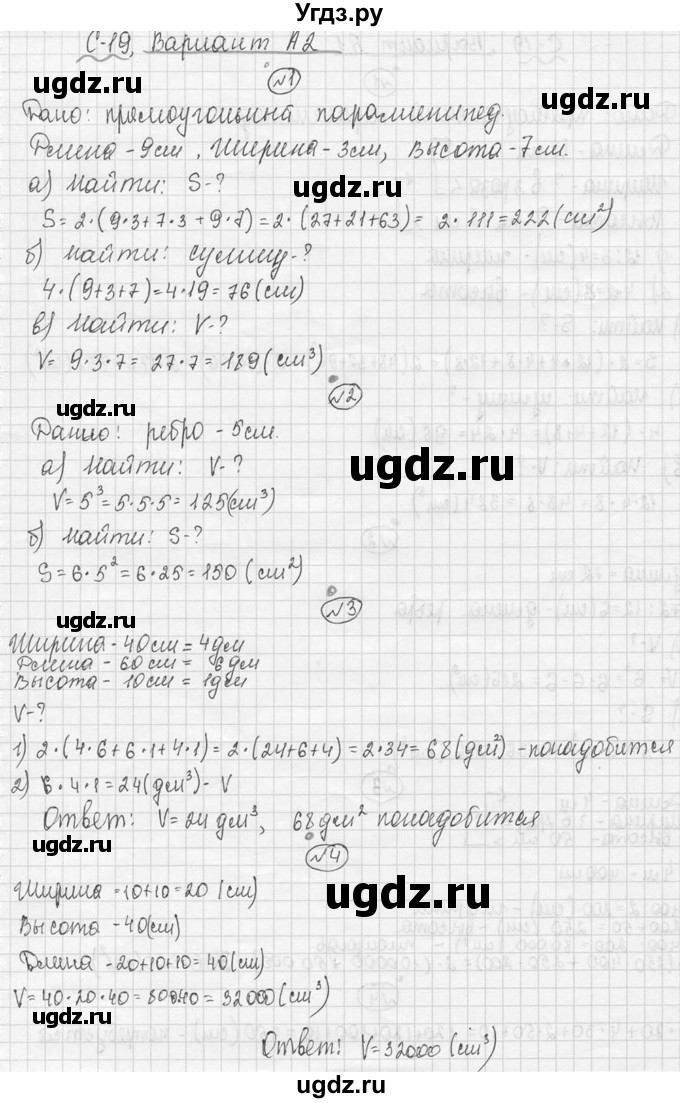 Угдз.ру
С-19, Вариант А2
ugdz.ru ugdz.ru
№1
Дано: прямоугольный параллепипед.
Длина - 9см, Ширина - 3см, Высота - 7см.
ugdz.ru
а) Найти: S-?
S = 2·(9·3+7·3+9·7) = 2·(27+21+63) = 2·111 = 222(см²)
б) Найти: сумму-?
ugdz.ru
4·(9+3+7) = 4·19 = 76(см)
в) Найти: V-?
V = 9·3·7 = 27·7 = 189(см³)
№2
ugdz.ru
Данно: ребро - 5см.
а) Найти: V-?
ugdz.ru
V = 5³ = 5·5·5 = 125(см³)
б) Найти: S-?
S = 6·5² = 6·25 = 150 (см²)
№3
ugdz.ru
Ширина - 40см = 4дм
Длина - 60см = 6дм
Высота - 10см = 1дм
ugdz.ru
V-?
1) 2·(4·6+6·1+4·1) = 2·(24+6+4) = 2·34 = 68(дм²) - понадобится
2) 6·4·1 = 24(дм³) - V
Ответ: V = 24 дм³, 68 дм² понадобится
ugdz.ru
№4
Ширина = 10+10 = 20 (см)
ugdz.ru
Высота - 40(см)
Длина - 20+10+10 = 40(см)
V = 40·20·40 = 800·40 = 32000(см³)
ugdz.ru
Ответ: V = 32000 (см³)
ugdz.ru